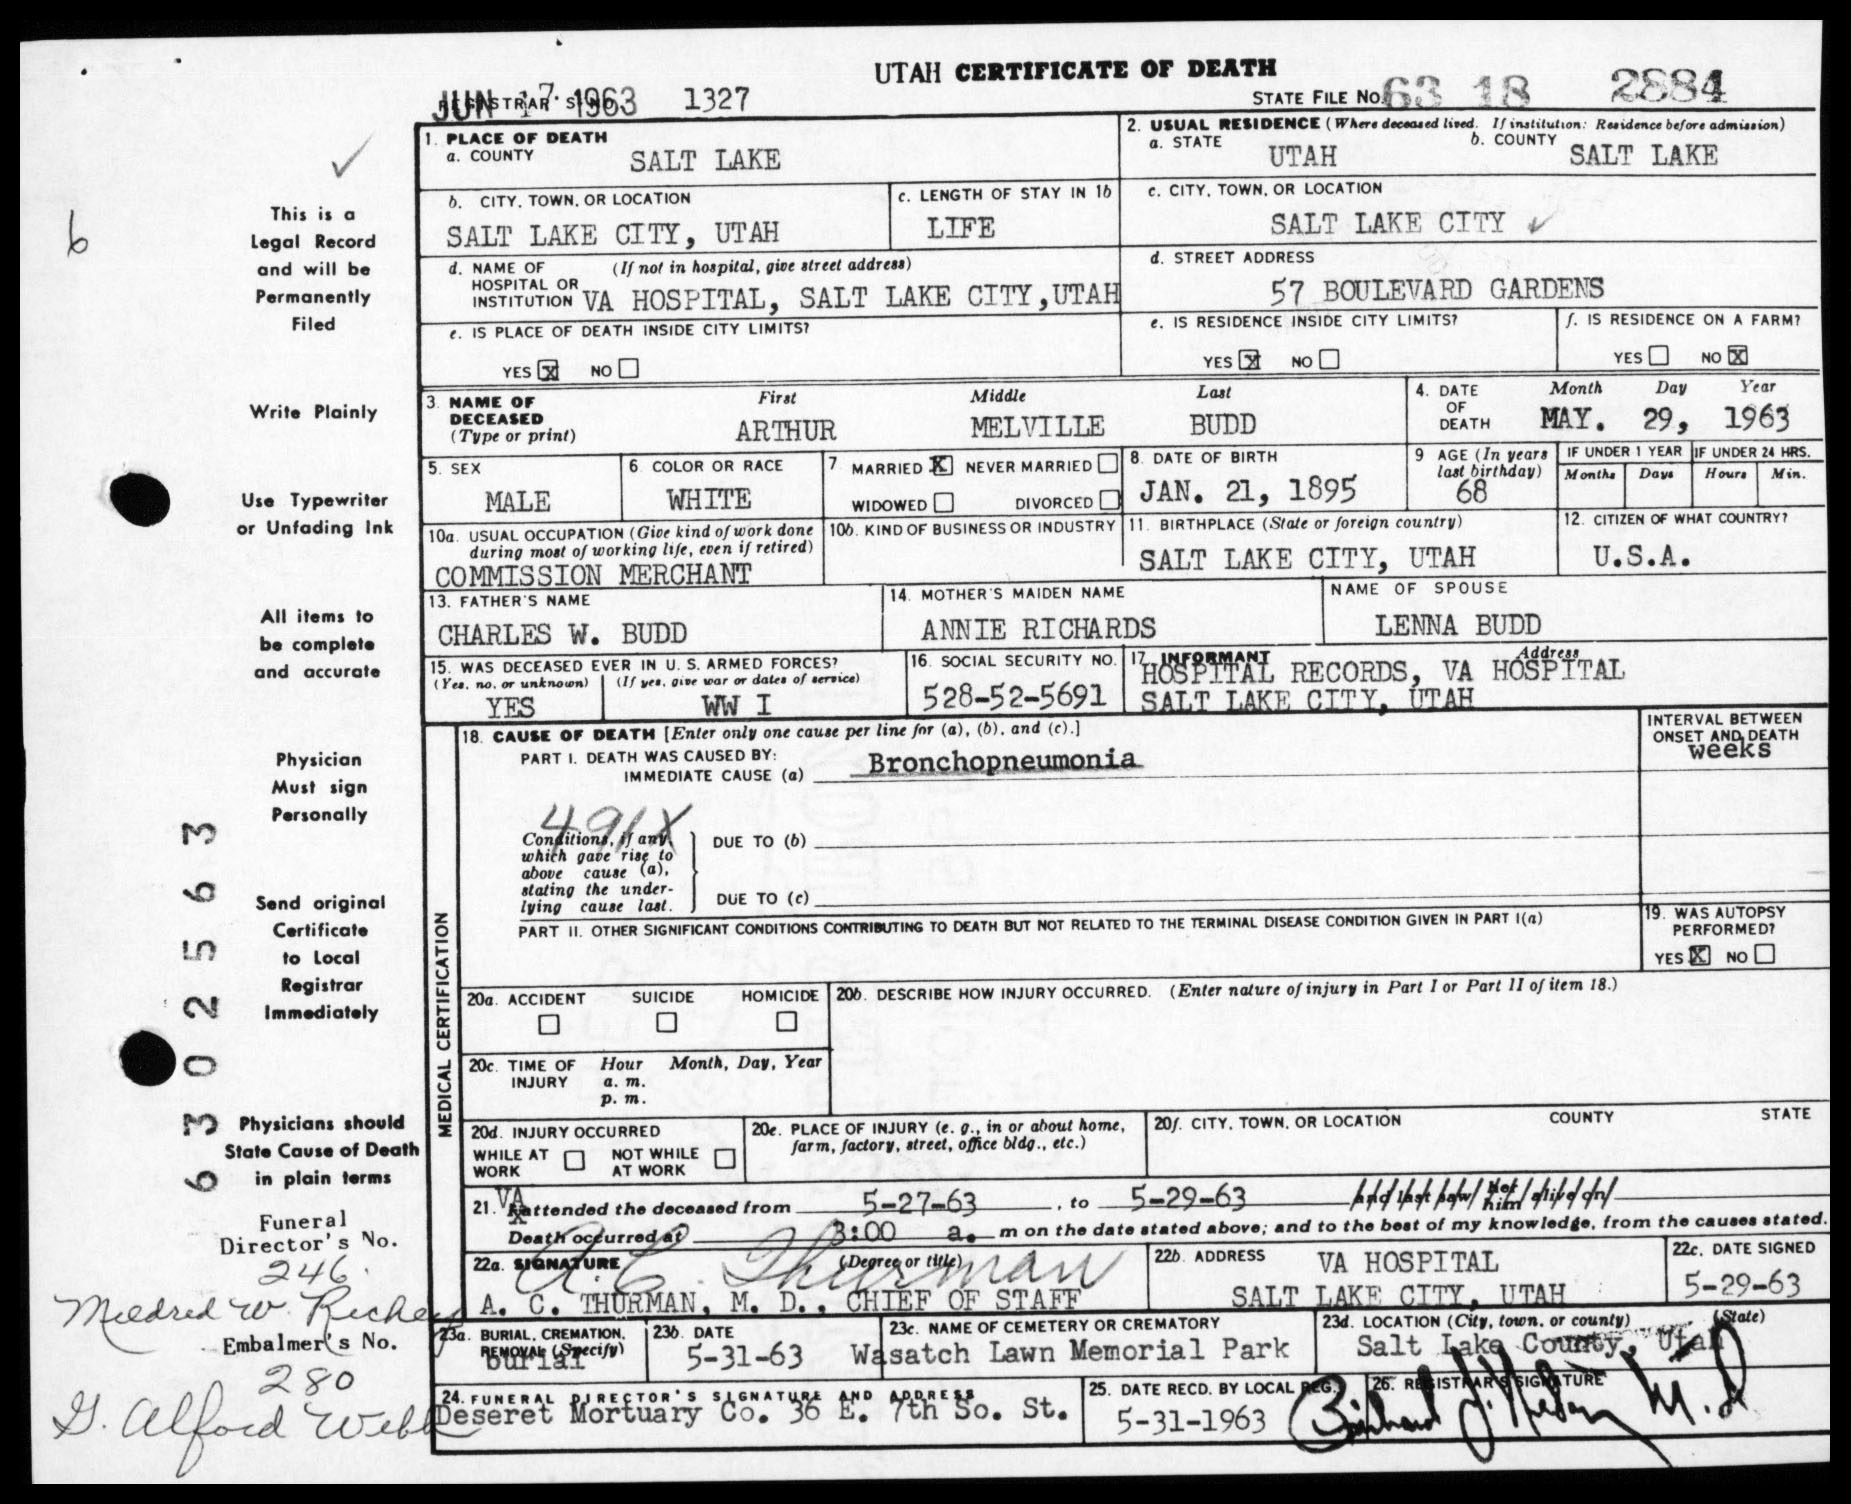 UTAH CERTIFICATE OF DEATH
JUN 17 1963 REGISTRAR'S NO. 1327
STATE FILE NO. 63 18 2884
1. PLACE OF DEATH
a. COUNTY SALT LAKE
2. USUAL RESIDENCE (Where deceased lived. If institution: Residence before admission)
a. STATE UTAH b. COUNTY SALT LAKE
b. CITY, TOWN, OR LOCATION
SALT LAKE CITY, UTAH
c. LENGTH OF STAY IN 1b
LIFE
c. CITY, TOWN, OR LOCATION
SALT LAKE CITY
d. NAME OF HOSPITAL OR INSTITUTION (If not in hospital, give street address)
VA HOSPITAL, SALT LAKE CITY, UTAH
d. STREET ADDRESS
57 BOULEVARD GARDENS
e. IS PLACE OF DEATH INSIDE CITY LIMITS?
YES X NO
e. IS RESIDENCE INSIDE CITY LIMITS?
YES X NO
f. IS RESIDENCE ON A FARM?
YES NO X
3. NAME OF DECEASED (Type or print)
First Middle Last
ARTHUR MELVILLE BUDD
4. DATE OF DEATH
Month Day Year
MAY. 29, 1963
5. SEX
MALE
6. COLOR OR RACE
WHITE
7. MARRIED X NEVER MARRIED
WIDOWED DIVORCED
8. DATE OF BIRTH
JAN. 21, 1895
9. AGE (In years last birthday)
68
IF UNDER 1 YEAR
Months Days
IF UNDER 24 HRS.
Hours Min.
10a. USUAL OCCUPATION (Give kind of work done during most of working life, even if retired)
COMMISSION MERCHANT
10b. KIND OF BUSINESS OR INDUSTRY
11. BIRTHPLACE (State or foreign country)
SALT LAKE CITY, UTAH
12. CITIZEN OF WHAT COUNTRY?
U.S.A.
13. FATHER'S NAME
CHARLES W. BUDD
14. MOTHER'S MAIDEN NAME
ANNIE RICHARDS
NAME OF SPOUSE
LENNA BUDD
15. WAS DECEASED EVER IN U. S. ARMED FORCES?
(Yes, no, or unknown) (If yes, give war or dates of service)
YES WW I
16. SOCIAL SECURITY NO.
528-52-5691
17. INFORMANT Address
HOSPITAL RECORDS, VA HOSPITAL
SALT LAKE CITY, UTAH
MEDICAL CERTIFICATION
18. CAUSE OF DEATH [Enter only one cause per line for (a), (b), and (c).]
PART I. DEATH WAS CAUSED BY:
IMMEDIATE CAUSE (a) Bronchopneumonia
INTERVAL BETWEEN ONSET AND DEATH
weeks
491X
Conditions, if any, which gave rise to above cause (a), stating the underlying cause last.
DUE TO (b)
DUE TO (c)
PART II. OTHER SIGNIFICANT CONDITIONS CONTRIBUTING TO DEATH BUT NOT RELATED TO THE TERMINAL DISEASE CONDITION GIVEN IN PART I(a)
19. WAS AUTOPSY PERFORMED?
YES X NO
20a. ACCIDENT SUICIDE HOMICIDE
20b. DESCRIBE HOW INJURY OCCURRED. (Enter nature of injury in Part I or Part II of item 18.)
20c. TIME OF INJURY Hour Month, Day, Year
a. m.
p. m.
20d. INJURY OCCURRED
WHILE AT WORK NOT WHILE AT WORK
20e. PLACE OF INJURY (e. g., in or about home, farm, factory, street, office bldg., etc.)
20f. CITY, TOWN, OR LOCATION COUNTY STATE
21. VA attended the deceased from 5-27-63, to 5-29-63 and last saw her him alive on
Death occurred at 3:00 a. m on the date stated above; and to the best of my knowledge, from the causes stated.
22a. SIGNATURE (Degree or title)
A. C. Thurman
A. C. THURMAN, M. D., CHIEF OF STAFF
22b. ADDRESS VA HOSPITAL
SALT LAKE CITY, UTAH
22c. DATE SIGNED
5-29-63
23a. BURIAL, CREMATION, REMOVAL (Specify)
burial
23b. DATE
5-31-63
23c. NAME OF CEMETERY OR CREMATORY
Wasatch Lawn Memorial Park
23d. LOCATION (City, town, or county) (State)
Salt Lake County, Utah
24. FUNERAL DIRECTOR'S SIGNATURE AND ADDRESS
Deseret Mortuary Co. 36 E. 7th So. St.
25. DATE RECD. BY LOCAL REG.
5-31-1963
26. REGISTRAR'S SIGNATURE
M.D
6
This is a
Legal Record
and will be
Permanently
Filed
Write Plainly
Use Typewriter
or Unfading Ink
All items to
be complete
and accurate
Physician
Must sign
Personally
Send original
Certificate
to Local
Registrar
Immediately
Physicians should
State Cause of Death
in plain terms
6302563
Funeral
Director's No.
246.
Mildred W. Richey
Embalmer's No.
280
G. Alford Webb